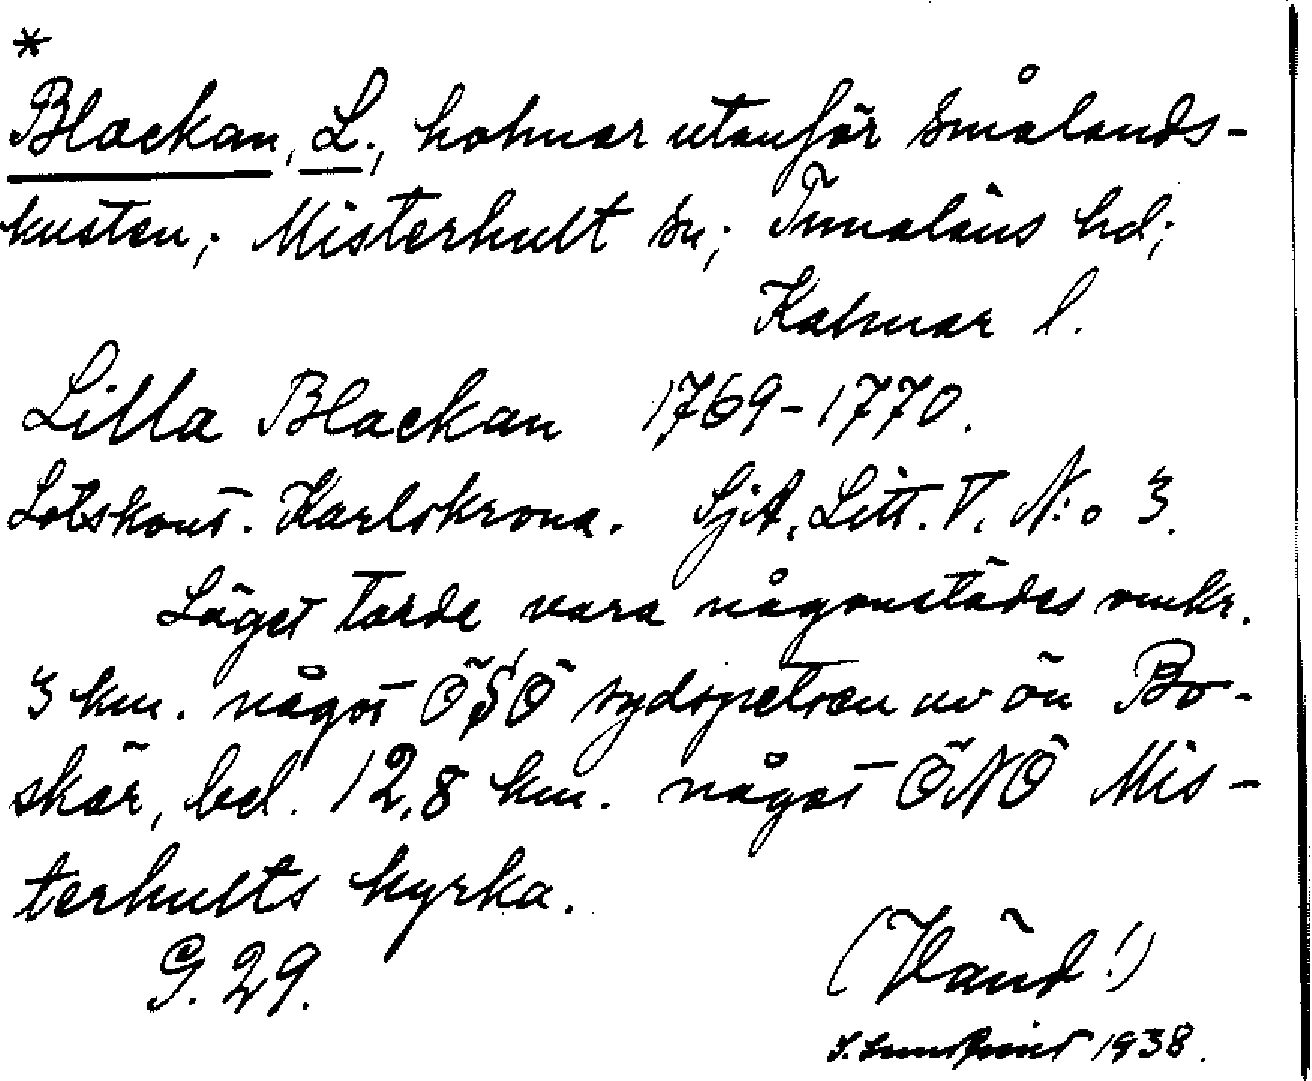 *
Blackan, L., holmar utanför Smålands-
kusten; Misterhult sn; Tunaläns hd;
Kalmar l.
Lilla Blackan 1769-1770.
Lotskont. Karlskrona. SjA, Litt. V. N:o 3.
Läget torde vara någonstädes omkr.
3 km. något ÖSÖ sydspetsen av ön Bo-
skär, bel. 12,8 km. något ÖNÖ Mis-
terhults kyrka.
G. 29.
(Vänd!)
1938.